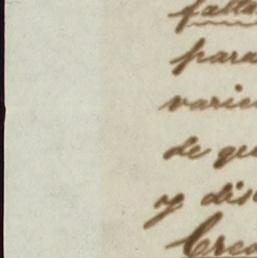 falta
para
varie
de qu
y dis
Creo